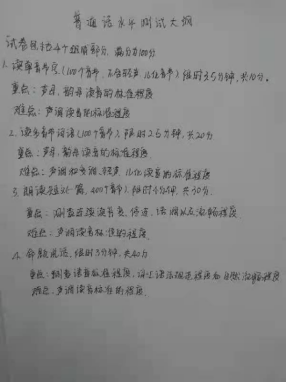 普通话水平测试大纲
试卷包括4个组成部分,满分为100分
1. 读单音节字(100个音节,不含轻声、儿化音节),限时3.5分钟,共10分。
重点:声母、韵母读音的标准程度
难点:声调读音的标准程度
2. 读多音节词语(100个音节),限时2.5分钟,共20分
重点:声母、韵母读音的标准程度
难点:声调和变调、轻声、儿化读音的标准程度
3. 朗读短文一篇,400个音节,限时4分钟,共30分.
重点:测查连续读音、停连、语调以及流畅程度.
难点:声调读音标准的程度.
4. 命题说话,限时3分钟,共40分
重点:测查语音标准程度,词汇语法规范程度和自然流畅程度.
难点:声调读音标准的程度.